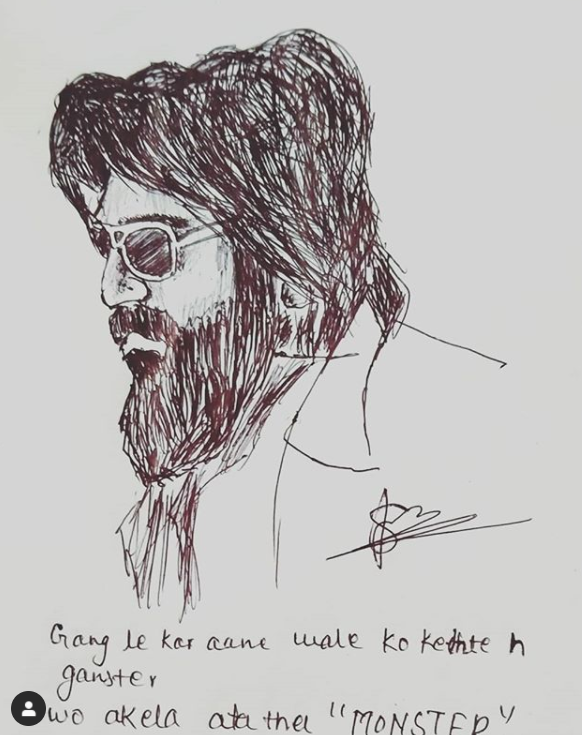 Gang le kar aane wale ko kehte h
ganster
wo akela ata tha "MONSTER"